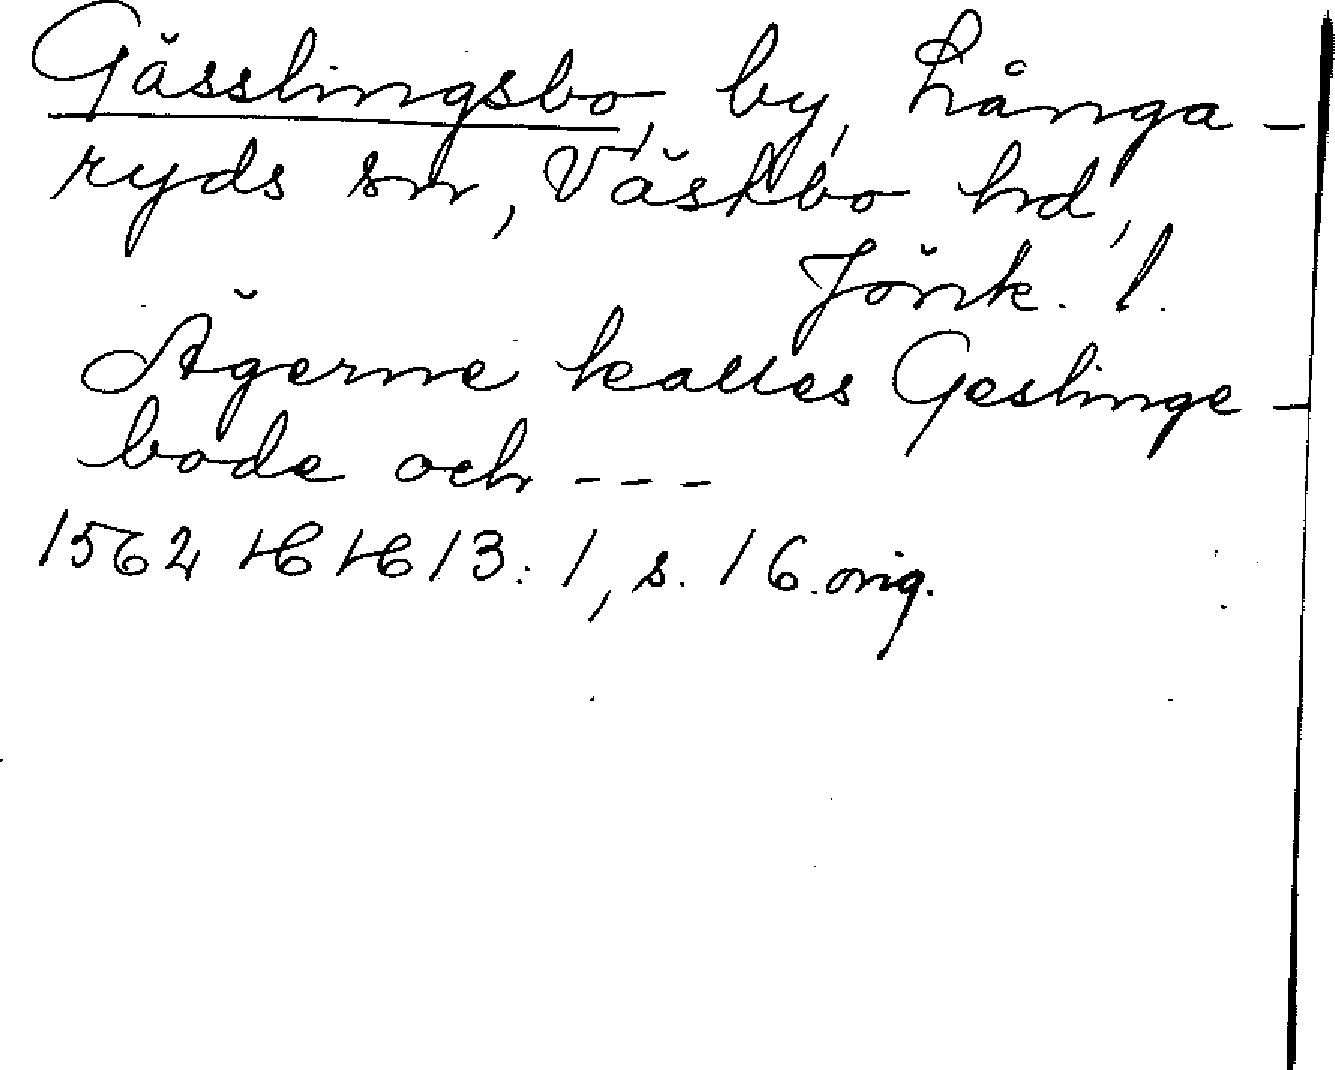 Gässlingsbo, by, Långa-
ryds sn, Västbo hd,
Jönk. l.
Ägerne kalles Geslinge-
bode och ---
1562 HH 13:1, s. 16 orig.